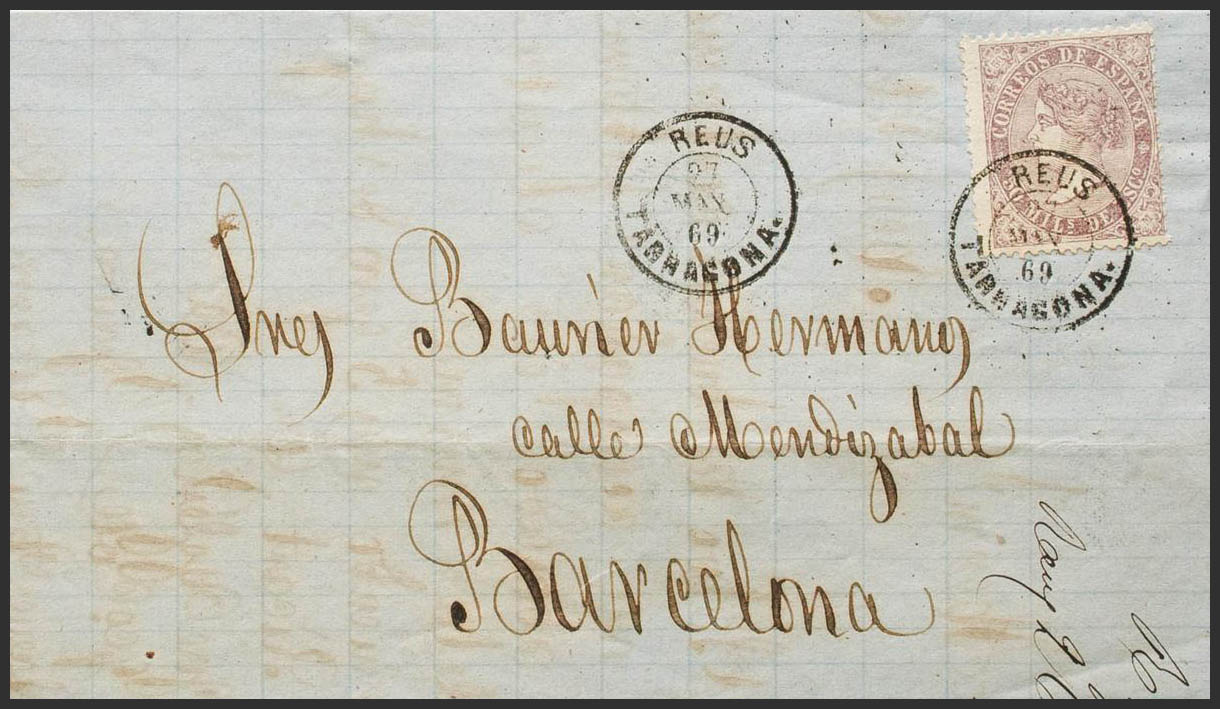 CORREOS DE ESPAÑA
50 MILS DE EOS
REUS
27
MAY
69
TARRAGONA
REUS
MAY
69
TARRAGONA
Sres Baurier Hermanos
calle Mendizabal
Barcelona